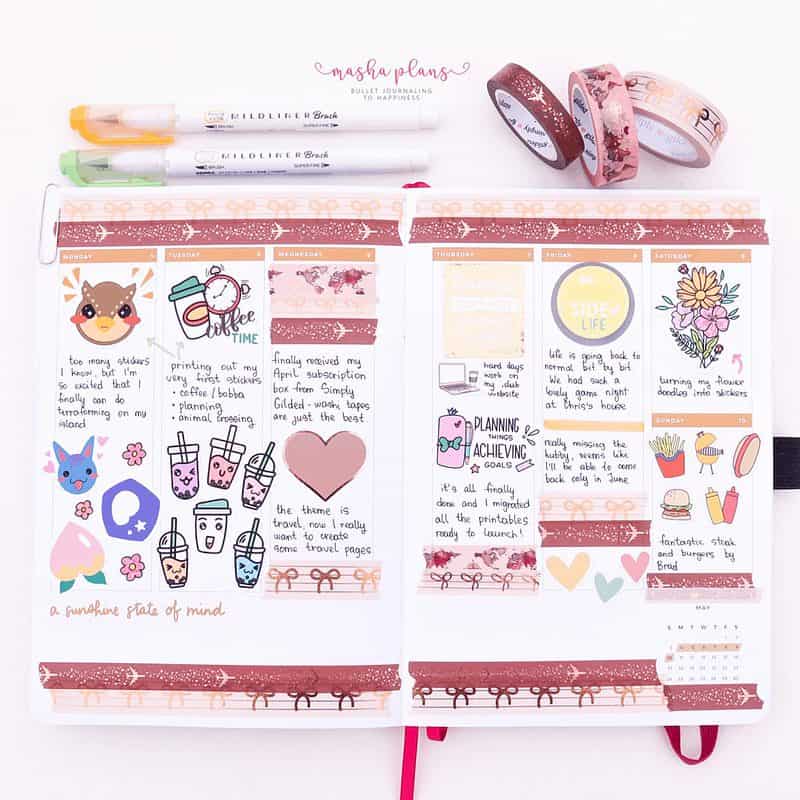 masha plans
BULLET JOURNALING
TO HAPPINESS
MILDLINER Brush
BRUSH
SUPER FINE
MILDLINER Brush
BRUSH
SUPER FINE
MONDAY
too many stickers
I know, but I'm
so excited that I
finally can do
terraforming on my
island
TUESDAY
coffee
TIME
printing out my
very first stickers
• coffee / bobba
• planning
• animal crossing
WEDNESDAY
finally received my
April subscription
box from Simply
Gilded - washi tapes
are just the best
the theme is
travel, now I really
want to create
some travel pages
a sunshine state of mind
THURSDAY
hard days
work on
my
website
PLANNING
THINGS
ACHIEVING
GOALS
it's all finally
done and I migrated
all the printables
ready to launch!
FRIDAY
SIDE of
LIFE
Life is going back to
normal bit by bit
We had such a
lovely game night
at Chris's house
really missing the
hubby, seems like
I'll be able to come
back only in June
SATURDAY
turning my flower
doodles into stickers
SUNDAY
10
fantastic steak
and burgers by
Brad
MAY
S M T W T F S